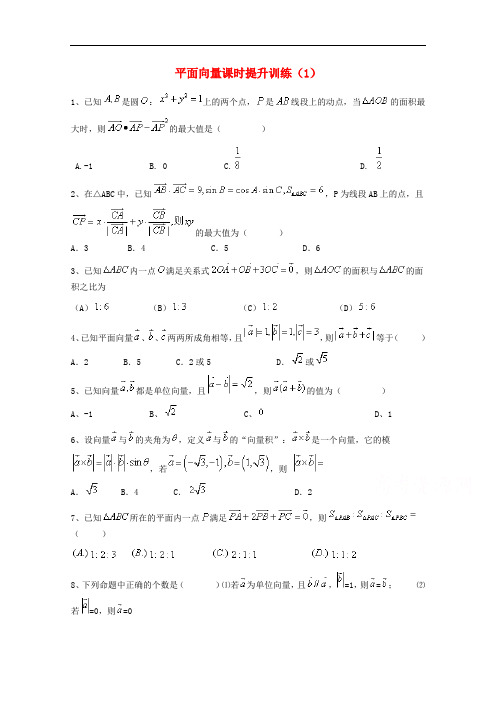 平面向量课时提升训练（1）
1、已知A,B是圆O：x²+y²=1上的两个点，P是AB线段上的动点，当△AOB的面积最
大时，则AO•AP−AP²的最大值是（ ）
A.-1 B. 0 C. 1/8 D. 1/2
2、在△ABC中，已知AB·AC=9,sin B=cos A·sin C,S△ABC=6，P为线段AB上的点，且
CP=x·CA/|CA|+y·CB/|CB|,则xy的最大值为（ ）
A．3 B．4 C．5 D．6
3、已知△ABC内一点O满足关系式2OA+OB+3OC=0，则△AOC的面积与△ABC的面
积之比为
（A）1:6 （B）1:3 （C）1:2 （D）5:6
4、已知平面向量a、b、c两两所成角相等，且|a|=1,|b|=1,|c|=3，则|a+b+c|等于（ ）
A．2 B．5 C．2或5 D．√2或√5
5、已知向量a,b都是单位向量，且|a−b|=√2，则a(a+b)的值为（ ）
A、-1 B、√2 C、0 D、1
6、设向量a与b的夹角为θ，定义a与b的“向量积”：a×b是一个向量，它的模
|a×b|=|a|·|b|·sinθ，若a=(−√3,−1),b=(1,√3)，则 |a×b|=
A．√3 B．4 C．2√3 D．2
7、已知△ABC所在的平面内一点P满足PA+2PB+PC=0，则S△PAB:S△PAC:S△PBC=
（ ）
(A)1:2:3 (B)1:2:1 (C)2:1:1 (D)1:1:2
8、下列命题中正确的个数是（ ）⑴若a为单位向量，且b//a，|b|=1，则a=b； ⑵
若|a|=0，则a=0